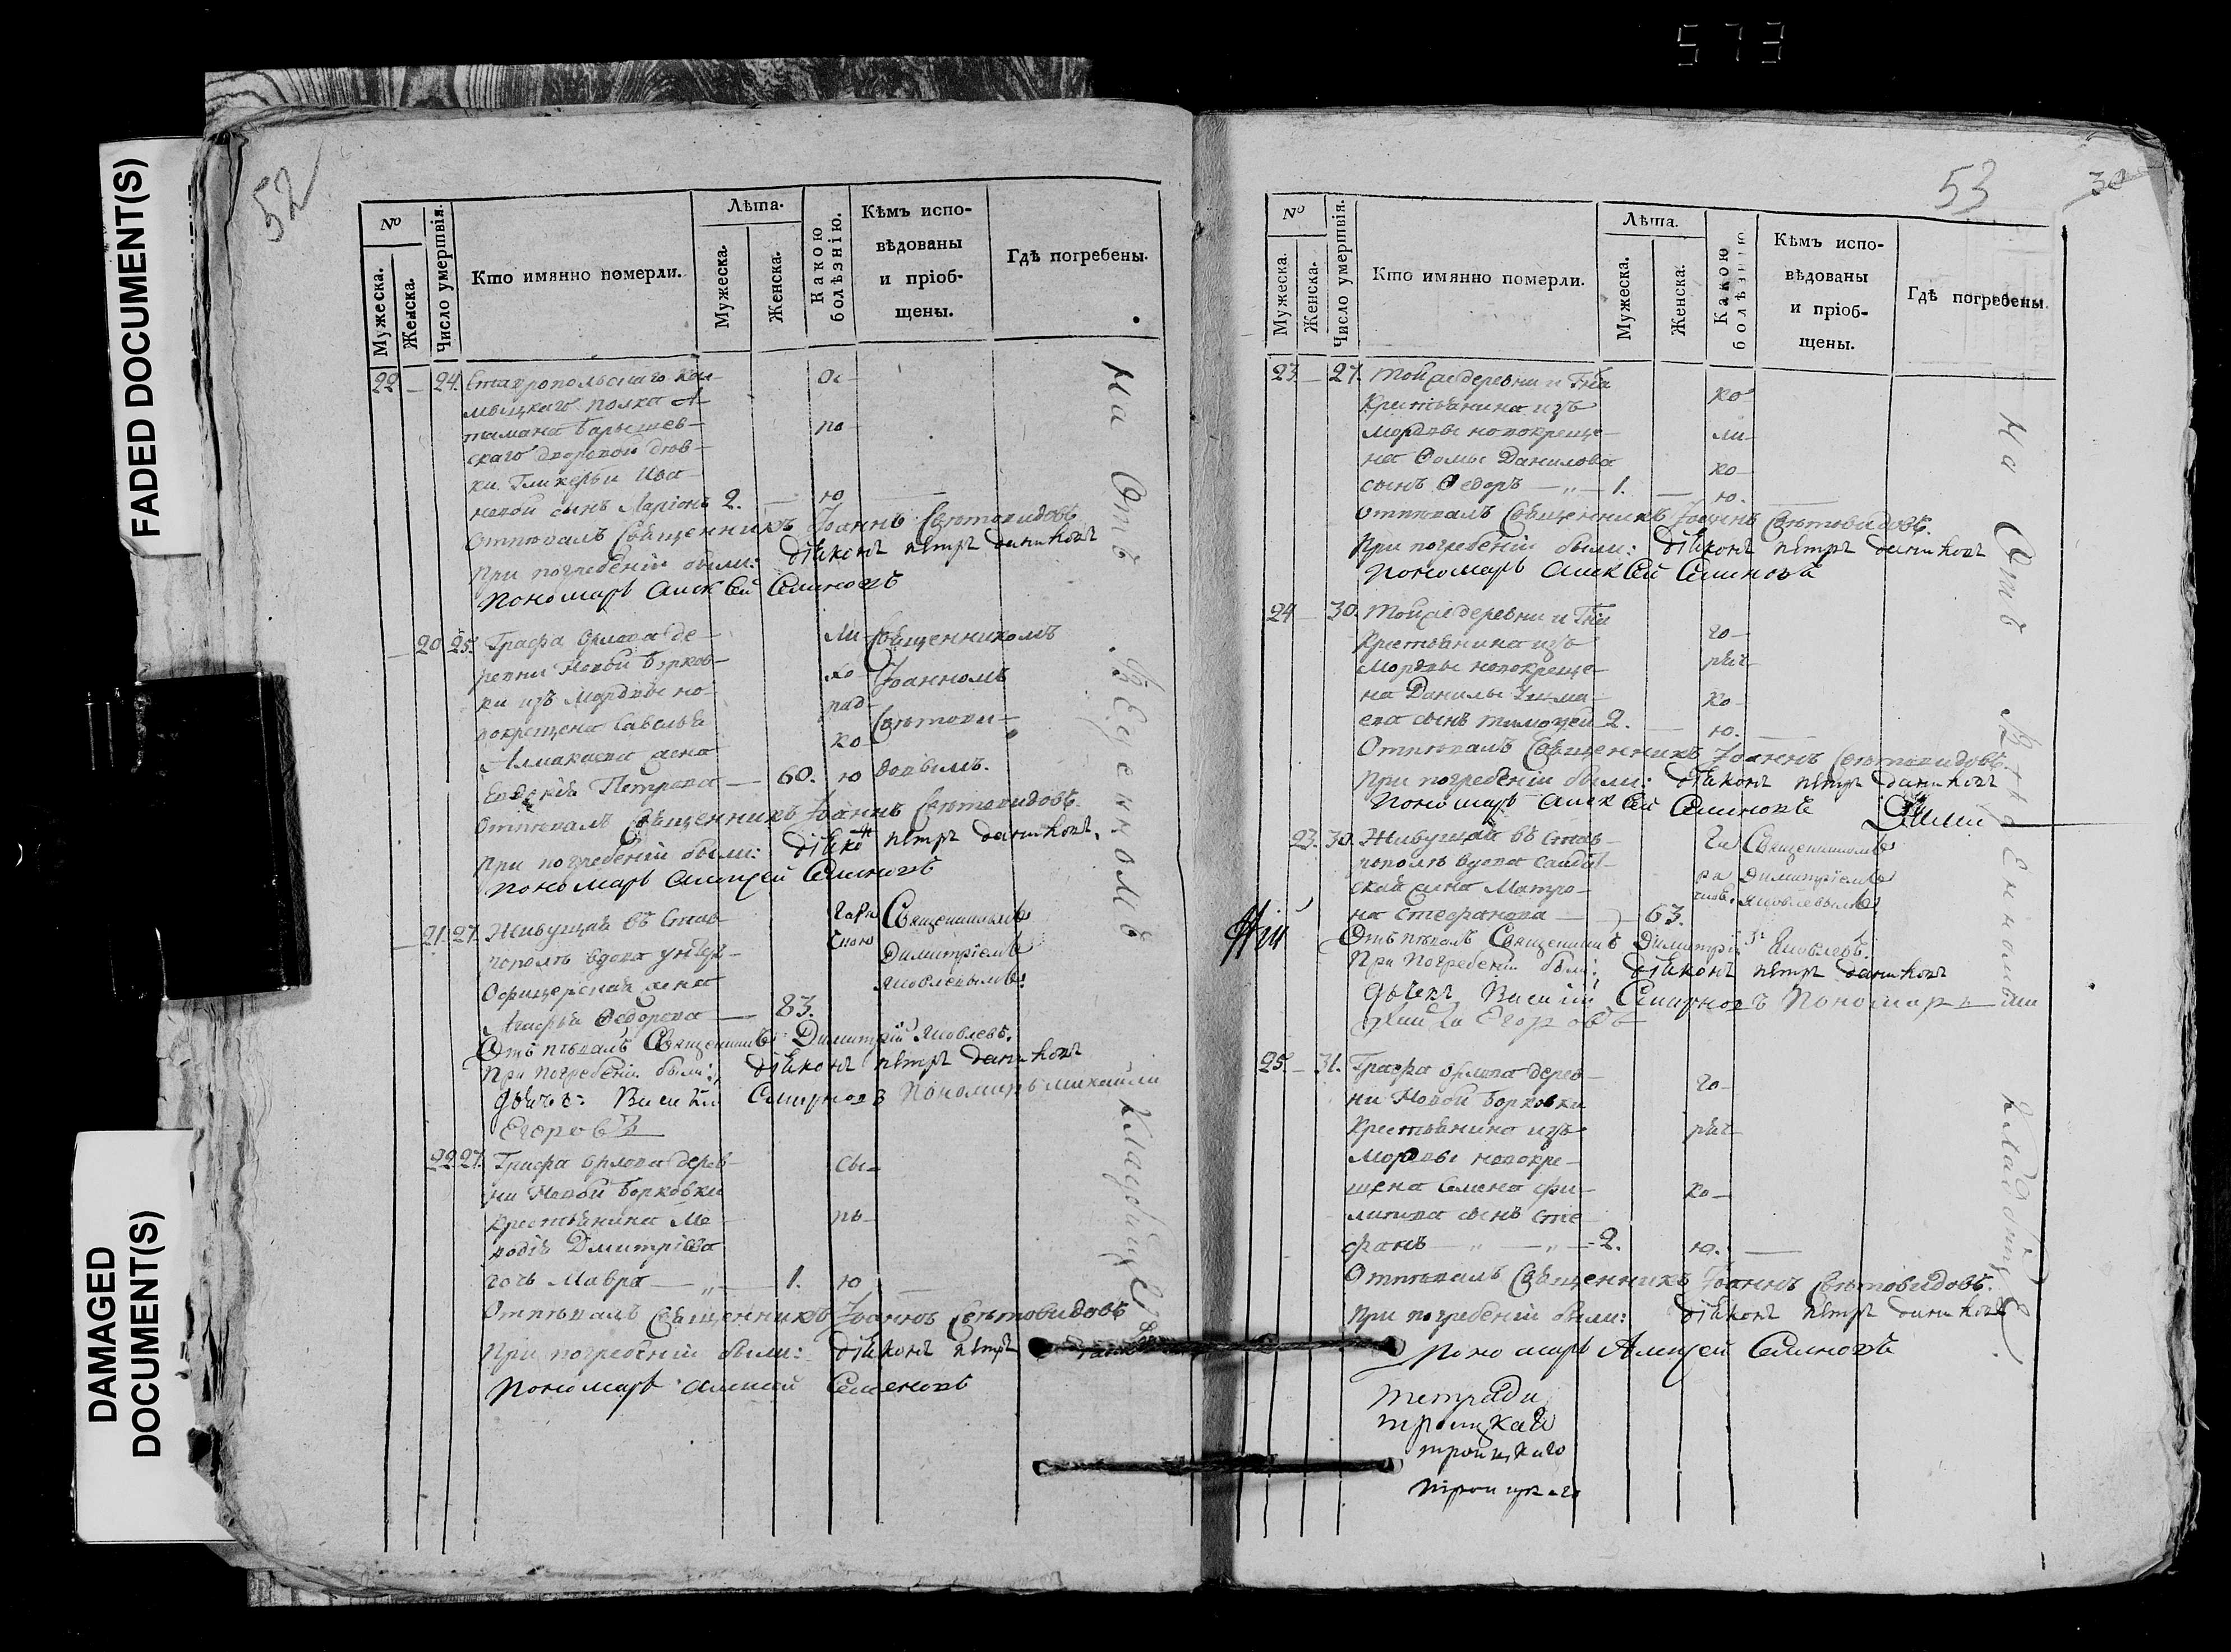 573
FADED DOCUMENT(S)
DAMAGED
DOCUMENT(S)
52
№
Мужеска.
Женска.
Число умертвія.
Кто имянно померли.
Лѣта.
Мужеска.
Женска.
Какою
болѣзнію.
Кѣмъ испо-
вѣдованы
и пріоб-
щены.
Гдѣ погребены.
22 — 24. Ставропольскаго Кал-
мыцкаго полка А-
тамана Барышев-
скаго дворовой дѣв-
ки Гликерьи Ива-
новой сынъ Ларіонъ 2. —
Ос-
по-
ю
Отпѣвалъ Священникъ Іоаннъ Свѣтовидовъ
При погребеніи были: діаконъ Петръ
Пономарь Алексей Семеновъ
— 20 25. Графа Орлова де-
ревни Новой Борков-
ки изъ Мордвы но-
вокрещена Савелья
Алмакаева жена
Евдокія Петрова — 60.
ли-
хо-
рад-
ко-
ю
Священникомъ
Іоанномъ
Свѣтови-
довымъ.
Отпѣвалъ Священникъ Іоаннъ Свѣтовидовъ.
При погребеніи были: діаконъ Петръ
Пономарь Алексей Семеновъ
— 21. 27. Живущая въ Став-
рополѣ вдова унтер-
Офицерская жена
Федорова — 83.
Священникомъ
Димитріемъ
Яковлевымъ.
Отъпѣвалъ Священникъ Димитрій Яковлевъ.
При погребеніи были: діаконъ Петръ
дьячекъ Василій Смирновъ Пономарь Михайла
Егоровъ
22. 27. Графа Орлова дерев-
ни Новой Борковки
Крестьянина Ме-
Дмитріева
дочь Мавра — „ — 1.
сы-
пь-
ю
Отпѣвалъ Священникъ Іоаннъ Свѣтовидовъ
При погребеніи были: діаконъ Петръ
Пономарь Алексей Семеновъ
На Отъ
веденномъ
кладбищѣ
53
30
№
Мужеска.
Женска.
Число умертвія.
Кто имянно померли.
Лѣта.
Мужеска.
Женска.
Какою
болѣзнію
Кѣмъ испо-
вѣдованы
и пріоб-
щены.
Гдѣ погребены.
23 — 27. Той же деревни и Гна
Крестьянина изъ
Мордвы новокреще-
на Фомы Данилова
сынъ Федоръ — „ — 1. —
ко-
ли-
ко-
ю.
Отпѣвалъ Священникъ Іоаннъ Свѣтовидовъ.
При погребеніи были: діаконъ Петръ
Пономарь Алексей Семеновъ
24 — 30. Той же деревни и Гна
Крестьянина изъ
Мордвы новокреще-
на Данилы
ева сынъ Тимофей 2.
го-
ряч-
ко-
ю.
Отпѣвалъ Священникъ Іоаннъ Свѣтовидовъ.
При погребеніи были: діаконъ Петръ
Пономарь Алексей Семеновъ
23. 30. Живущая въ Став-
рополѣ вдова Салдат-
ская жена Матро-
на Стефанова — 63.
Священникомъ
Димитріемъ
Яковлевымъ.
Отъпѣвалъ Священникъ Димитрій Яковлевъ.
При погребеніи были: діаконъ Петръ
дьячекъ Василій Смирновъ Пономарь Ми
хайла Егоровъ
25. — 31. Графа Орлова дерев-
ни Новой Борковки
Крестьянина изъ
Мордвы новокре-
щена Семена Фи-
липова сынъ Сте-
фанъ — „ — „ — 2.
го-
ряч-
ко-
ю.
Отпѣвалъ Священникъ Іоаннъ Свѣтовидовъ.
При погребеніи были: діаконъ Петръ
Пономарь Алексей Семеновъ
На Отъ
веденномъ
кладбищѣ.
тетради
троицкай
троицкаго
троицкаго